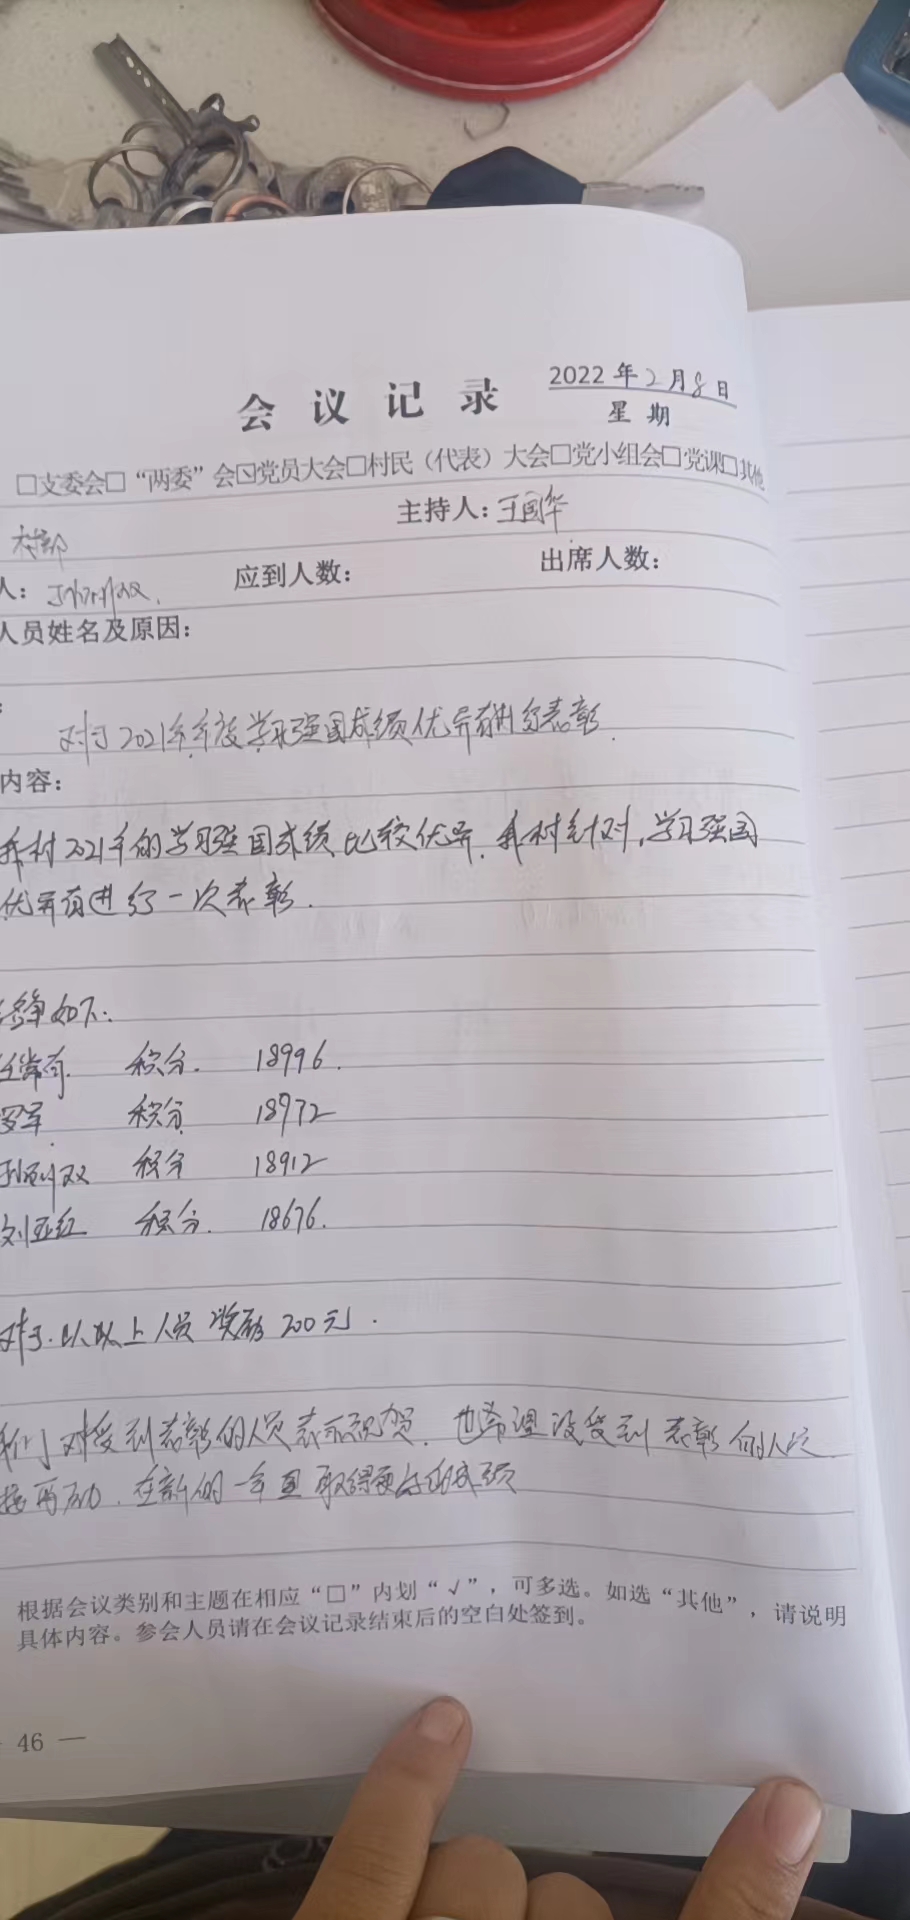 会议记录 2022年2月8日
星期
□支委会□“两委”会☑党员大会□村民（代表）大会□党小组会□党课□其他
村部 主持人：王国华
人： 应到人数： 出席人数：
人员姓名及原因：
：
对于2021年年度学习强国成绩优异者进行表彰.
内容：
我村2021年的学习强国成绩比较优异，我村针对，学习强国
优异者进行了一次表彰.
名单如下：
积分. 18996.
罗军 积分 18972
积分 18912
刘亚红 积分. 18676.
对于.以以上人员奖励200元.
我们对受到表彰的人员表示祝贺，也希望没受到表彰的人员
再 ，在新的一年里取得更好的成绩
根据会议类别和主题在相应“□”内划“√”，可多选。如选“其他”，请说明
具体内容。参会人员请在会议记录结束后的空白处签到。
46 —